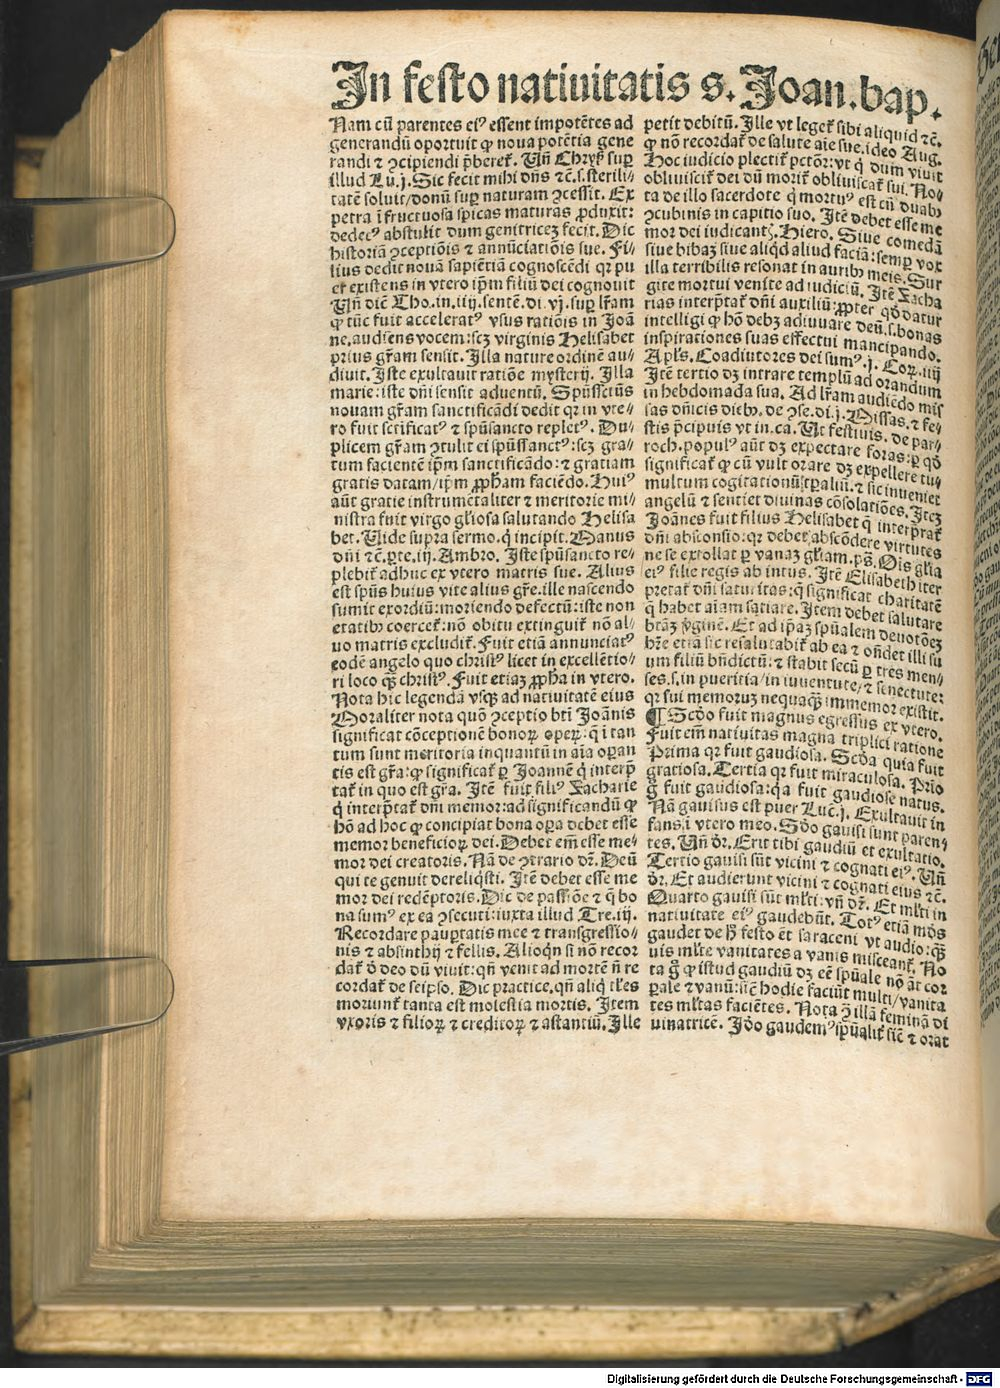 In festo natiuitatis s. Joan. bap.
Nam cū parentes eiꝰ essent impotētes ad
generandū oportuit ꝙ noua potētia gene
randi ⁊ ꝯcipiendi p̄beret᷑. Uñ Chryſ. suꝑ
illud Lu. j. Sic fecit mihi dñs ⁊c̄. s. sterili⸗
tatē soluit / donū suꝑ naturam ꝯcessit. Ex
petra īfructuosa spicas maturas ꝓduxit:
dedecꝰ abstulit dum genitricez fecit. Dic
historiā ꝯceptiōis ⁊ annūciatiōis sue. Fi⸗
lius dedit nouā sapiētiā cognoscēdi qꝛ pu
er existens in vtero ip̄m filiū dei cognouit
Uñ dic̄ Tho. in. iiij. sentē. di. vj. suꝑ lr̄am
ꝙ tūc fuit acceleratꝰ vsus ratiōis in Joā
ne. audiens vocem: scꝫ virginis Helisabet
prius gr̄am sensit. Illa nature ordinē au⸗
diuit. Iste exultauit ratiōe mysterij. Illa
marie: iste dñi sensit aduentū. Spūssctūs
nouam gr̄am sanctificādi dedit qꝛ in vte⸗
ro fuit sctificatꝰ ⁊ spūsancto repletꝰ. Du⸗
plicem gr̄am ꝯtulit ei spūssanctꝰ: scꝫ gra⸗
tum facientē ip̄m sanctificādo: ⁊ gratiam
gratis datam / ip̄m ꝓpħam faciēdo. Huiꝰ
aūt gratie instrumētaliter ⁊ meritorie mi⸗
nistra fuit virgo gl̄iosa salutando Helisa
bet. Uide supra sermo. q̄ incipit. Manus
dñi ⁊c̄. ꝑte. iij. Ambro. Iste spūsancto re⸗
plebit᷑ adhuc ex vtero matris sue. Alius
est spūs huius vite alius gr̄e. ille nascendo
sumit exordiū: moriendo defectū: iste non
etatibꝫ coercet᷑: nō obitu extinguit᷑ nō al⸗
uo matris excludit᷑. Fuit etiā annunciatꝰ
eodē angelo quo christꝰ licet in excellētio⸗
ri loco qꝫ christꝰ. Fuit etiaz ꝓpħa in vtero.
Nota hic legendā vsqꝫ ad natiuitatē eius
Moraliter nota quō ꝯceptio bti Joānis
significat cōceptionē bonoꝝ operꝝ: q̄ i tan
tum sunt meritoria inquantū in aīa operan
tis est gr̄a: ꝙ significat᷑ ꝑ Joannē q̄ interp̄
tat᷑ in quo est gr̄a. Itē fuit filiꝰ Zacharie
q̄ interp̄tat᷑ dñi memor: ad significandū ꝙ
hō ad hoc ꝙ concipiat bona oꝑa debet esse
memor beneficioꝝ dei. Debet em̄ esse me⸗
mor dei creatoris. Nā de ꝯtrario dꝛ. Deū
qui te genuit dereliq̄sti. Itē debet esse me
mor dei redēptoris. Dic de passiōe ⁊ q̄ bo
na sumꝰ ex ea ꝯsecuti: iuxta illud Tre. iij.
Recordare pauꝑtatis mee ⁊ transgressio⸗
nis ⁊ absinthij ⁊ fellis. Alioqñ si nō recor
dat᷑ ð deo dū viuit: qñ venit ad mortē ñ re
cordat᷑ de seipso. Dic practice. qñ aliq̄ tl̄es
moriunt᷑ tanta est molestia mortis. Item
vxoris ⁊ filioꝝ ⁊ creditoꝝ ⁊ astantiū. Ille
petit debitū. Ille vt leget᷑ sibi aliquid ⁊c̄.
ꝙ nō recordat᷑ de salute aīe sue. ideo Aug.
Hoc iudicio plectit᷑ pctōꝛ: vt q̄ dum viuit
obliuiscit᷑ dei dū morit᷑ obliuiscat᷑ sui. No⸗
ta de illo sacerdote q̄ mortuꝰ est cū duabꝫ
ꝯcubinis in capitio suo. Itē debet esse me
mor dei iudicantꝭ. Hiero. Siue comedā
siue bibaz siue aliqd aliud faciā: semꝑ vox
illa terribilis resonat in auribꝫ meis. Sur
gite mortui venite ad iudiciū. Itē Zacha
rias interp̄tat᷑ dñi auxiliū: ꝓpter qð datur
intelligi ꝙ hō debꝫ adiuuare deū. s. bonas
inspirationes suas effectui mancipando.
Apl̄s. Coadiutores dei sumꝰ. j. Coꝝ. iij
Itē tertio dꝫ intrare templū ad orandum
in hebdomada sua. Ad lr̄am audiēdo mis
sas dñicis diebꝫ. de ꝯse. di. j. Missas. ⁊ fe⸗
stis p̄cipuis vt in. ca. Ut festiuis. de par⸗
roch. populꝰ aūt dꝫ expectare foras: ꝑ qð
significat᷑ ꝙ cū vult orare dꝫ expellere tu⸗
multum cogitationū tp̄aliū. ⁊ sic inueniet
angelū ⁊ sentiet diuinas cōsolatiōes. Itez
Joānes fuit filius Helisabet q̄ interp̄tat᷑
dñi absconsio: qꝛ debet abscōdere virtutes
ne se extollat ꝑ vanaz gl̄iam. ps̄. Ois gl̄ia
eiꝰ filie regis ab intus. Itē Elisabeth iter
pretat᷑ dñi saturitas: q̄ significat charitatē
q̄ habet aīam satiare. Item debet salutare
btāꝫ v̄ginē. Et ad ip̄aꝫ spūalem deuotōeꝫ
hr̄e etia sic resalutabit᷑ ab ea ⁊ on̄det illi su
um filiū bñdictū: ⁊ stabit secū ꝑ tres men⸗
ses. s. in pueritia / in iuuentute / ⁊ senectute:
qꝛ sui memoruꝫ nequaqꝫ immemor existit.
¶ Scðo fuit magnus egressus ex vtero.
Fuit em̄ natiuitas magna triplici ratione
Prima qꝛ fuit gaudiosa. Scða quia fuit
gratiosa. Tertia qꝛ fuit miraculosa. Prīo
g̊ fuit gaudiosa: qa fuit gaudiose natus.
Nā gauisus est puer Luc. j. Exultauit in
fans. ī vtero meo. Scðo gauisi sunt paren⸗
tes. Uñ dꝛ. Erit tibi gaudiū et exultatio.
Tertio gauisi sūt vicini ⁊ cognati eiꝰ. Uñ
dꝛ. Et audierunt vicini ⁊ cognati eius ⁊c̄.
Quarto gauisi sūt ml̄ti: vñ dꝛ. Et ml̄ti in
natiuitate eiꝰ gaudebūt. Totꝰ etiā mðs
gaudet de ħ festo et saraceni vt audio: qꝫ
uis ml̄te vanitates a vanis misceant᷑. No
ta g̊ ꝙ istud gaudiū dꝫ eē spūale nō āt cor
ꝑale ⁊ vanū: sic̄ hodie faciūt multi / vanita
tes ml̄tas faciētes. Nota ꝯ illā femina di
uinatricē. Iðo gaudemꝰ spūalit᷑ sic̄ ⁊ orat
Digitalisierung gefördert durch die Deutsche Forschungsgemeinschaft - DFG